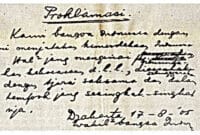 Proklamasi.
Kami bangsa Indonesia dengan
ini menjatakan kemerdekaan Indonesia
Hal² jang mengenai
kekoeasaan d.l.l.,
dengan tjara saksama
tempoh jang sesingkat-singkat
nja.
Djakarta 17-8-'05
Wakil² bangsa